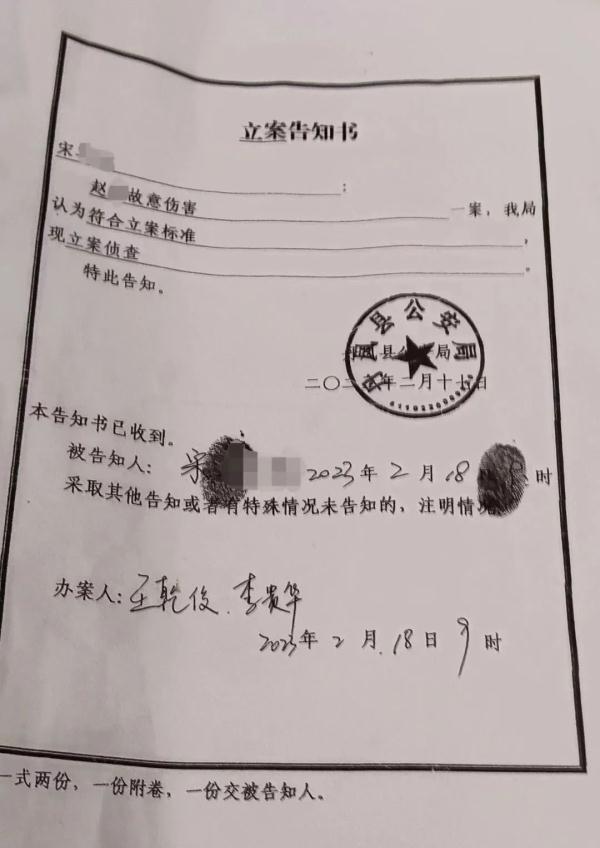 立案告知书
宋
：
赵 故意伤害 一案，我局
认为符合立案标准，
现立案侦查。
特此告知。
丹凤县公安局
凤县公安局
二〇二 年二月十七日
本告知书已收到。
被告知人：宋 2023年2月18日9时
采取其他告知或者有特殊情况未告知的，注明情况
办案人：王乾俊、李贵华
2023年2月18日9时
一式两份，一份附卷，一份交被告知人。